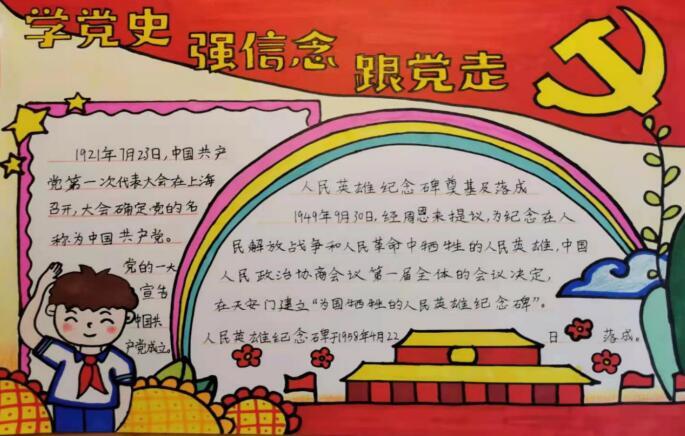 学党史
强信念
跟党走
1921年7月23日,中国共产
党第一次代表大会在上海
召开,大会确定党的名
称为中国共产党。
党的一大
宣告
中国共
产党成立。
人民英雄纪念碑奠基及落成
1949年9月30日,经周恩来提议,为纪念在人
民解放战争和人民革命中牺牲的人民英雄,中国
人民政治协商会议第一届全体的会议决定,
在天安门建立“为国牺牲的人民英雄纪念碑”。
人民英雄纪念碑于1958年4月22日 落成。